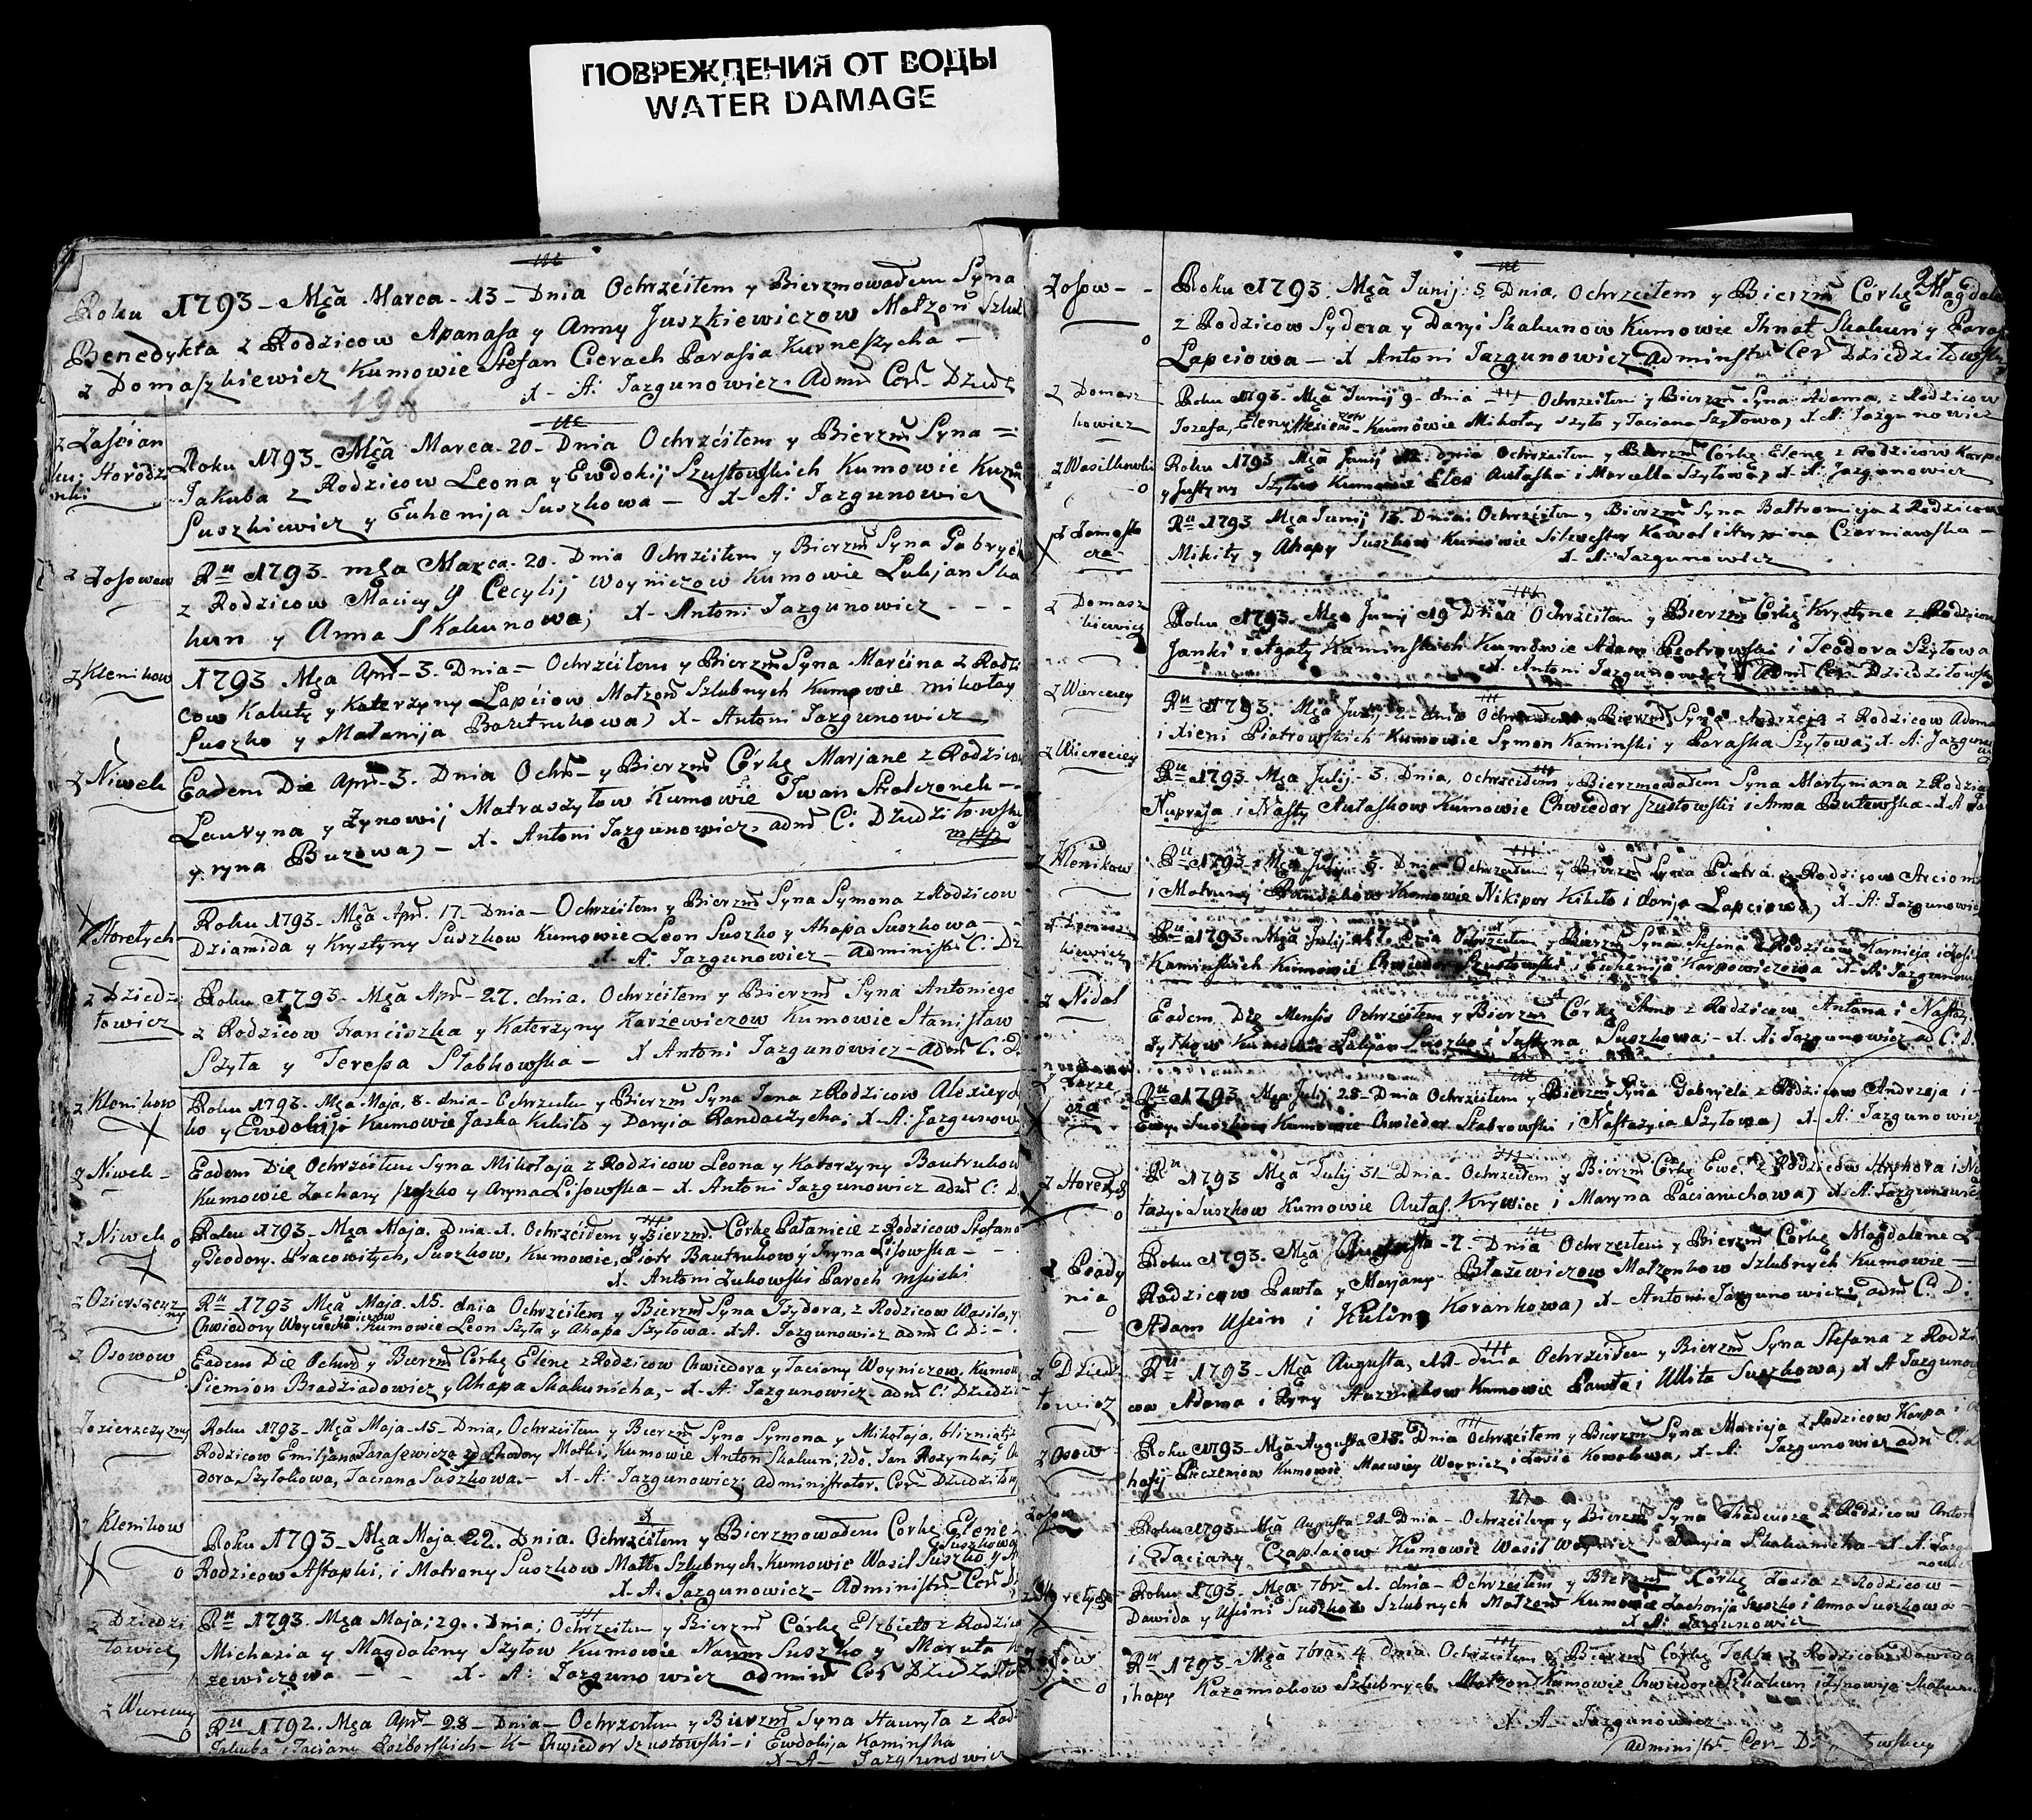 ПОВРЕЖДЕНИЯ ОТ ВОДЫ
WATER DAMAGE
Roku 1793 - Mça Marca - 13 - Dnia Ochrzćiłem y Bierzmowałem Syna
Benedykta z Rodzicow Apanasa y Anny Juszkiewiczow Małzon Szlub
z Domaszkiewicz Kumowie Stefan Cierach Parasia Kurneszycha -
X - A: Jazgunowicz - Adm Cer - Dzied
198
z Zaśćian
Roku 1793 - Mça Marca - 20 - Dnia Ochrzćiłem y Bierzm Syna =
Jakuba z Rodzicow Leona y Ewdokij Szustowskich Kumowie Kuzm
Suszkiewicz y Euhenija Suszkowa - X - A: Jazgunowicz
z Łosowow
Ru 1793 - mça Marca - 20 - Dnia Ochrzćiłem y Bierzm Syna Gabryel
z Rodzicow Maciey y Cecylij Woyniczow Kumowie Lukjan Ska
kun y Anna Skakunowa; X - Antoni Jazgunowicz - - -
z Klenikow
1793 Mça Apr - 3 - Dnia - Ochrzćiłem y Bierzm Syna Marćina z Rodzi
cow Kaluty y Katerzyny Łapćiow Małzon Szlubnych Kumowie mikołay
Suszko y Małanija Bautrukowa) X - Antoni Jazgunowicz
z Niwek
Eadem Die Apr - 3 - Dnia Ochr - y Bierzm Córkę Marjane z Rodzicow
Lauryna y Zynowij Matraszyłow Kumowie Iwan Strelczonek -
y ryna Burowa) - X - Antoni Jazgunowicz adm C: Dziedziłowsky
mpp
z Horełych
Roku 1793 - Mça Apr - 17 - Dnia - Ochrzćiłem y Bierzm Syna Symona z Rodzicow
Dziamida y Krystyny Suszkow Kumowie Leon Suszko y Ahapa Suszkowa -
X - A: Jazgunowicz - Administr C: Dz
z Dziedzi
łowicz
Roku 1793 - Mça Apr - 27. dnia. Ochrzćiłem y Bierzm Syna Antoniego
z Rodzicow Franćiszka y Katerzyny Karżewiczow Kumowie Stanisław
Szyła y Teressa Słabkowska - X Antoni Jazgunowicz - adm C: D.
z Klenikow
Roku 1793 - Mça Maja, 8 - dnia - Ochrzciłem y Bierzm Syna Jana z Rodzicow Alexieja
ko y Ewdokija Kumowie Jaska Kikiło y Daryia Randaczycha; X - A: Jazgunow
z Niwek -
Eadem Die Ochrzćiłem Syna Mikołaja z Rodzicow Leona y Katerzyny Bautrukow
Kumowie Zachary Suszko y Aryna Lisowska - X - Antoni Jazgunowicz adm C: D
z Niwek
Roku 1793 - Mça Maja. Dnia - 1. Ochrzćiłem y Bierzm. Córkę Pałanieie z Rodzicow Stefana
y Teodory. Pracowitych, Suszkow, Kumowie, Piotr Bautrukow y Iryna Lisowska -
X - Antoni Żukowski Paroch
z Ozierszczyz
ny
Ru 1793 Mça Maja. 15. dnia Ochrzćiłem y Bierzm Syna Izydora, z Rodzicow Wasila, y
Chwiedory Kumowie Leon Szyła y Ahapa Szyłowa. X A. Jazgunowicz adm C: D: -
z Osowow
Eadem Die Ochrz y Bierzm Córkę Elene z Rodzicow Chwiedora y Taciany Woyniczow, Kumow
Siemion Bradziadowicz y Ahapa Skakunicha, - X - A: Jazgunowicz - adm C: Dziedzi
Jozierszczyzny
Roku 1793 - Mça Maja - 15 - Dnia, Ochrzćiłem y Bierzm Syna Symona y Mikołaja. blizniąt z
Rodzicow Emiljana Tarasewicza Matki, Kumowie Anton Skakun; 2do. Jan Rozynko;
dora Szyłokowa, Taciana Suszkowa. - X - A: Jazgunowicz: Administrator. Cer - Dziedziłow
Klenikow
Roku 1793 - Mça Maja 22. Dnia. Ochrzćiłem y Bierzmowałem Córkę Elene -
Rodzicow Astapki, i Matrony Suszkow Małż Szlubnych, Kumowie Wasil Suszko, y A
Suszkowa
X - A. Jazgunowicz - Administr - Cer D
z Dziedzi
łowicz
Ru 1793 - Mça Maja; 29. Dnia; Ochrzćiłem y Bierzm Córkę Elzbietę z Rodzico
Michasia y Magdaleny Szyłow Kumowie Naum Suszko y Maruta K
zewiczowa - - X - A: Jazgunowicz admin Cer Dziedziłow
z Wierciey
Ru - 1792. Mça Apr - 28 - Dnia - Ochrzciłem y Bierzm Syna Hauryła z Rod
Jakuba i Taciany - K - Chwiedor Szustowski - i Ewdokija Kaminska
X - A - Jazgunowicz
z Łosow - -
Roku 1793. Mça Junij: 5. Dnia, Ochrzćiłem y Bierzm Corkę Magdale
z Rodzicow Sydera y Daryi Skakunow Kumowie Ihnat Skakun y Paras
Łapciowa - X Antoni Jazgunowicz Adminstr Cer Dziedziłowsky
z Domasz
kowicz
Roku 1793 - Mça Junij 9 - dnia - Ochrzćiłem y Bierzm Syna Adama, z Rodzicow
Jozefa, Eleny Kumowie Mikołay Szyło y Taciana Szyłowa) X A: Jazgunowicz
z Wasilkowki
Roku 1793 Mça Junij 12 dnia Ochrzciłem y Bierzm Córkę Elene z Rodzicow Karpa
y Justyny Szyłow Kumowie Eles Aułaska i Marcella Szyłowa; X A: Jazgunowicz
z Zamosto
cza -
Ru 1793 Mça Junij 13. Dnia. Ochrzćiłem y Bierzm Syna Bałtromieja z Rodzicow
Mikity y Ahapy Suszkow Kumowie Silwester Kawal i Czerniawska -
X - A: Jazgunowicz
z Domasz
kiewicz
Roku 1793 - Mça Junij 19 Dnia Ochrzćiłem y Bierzm Córkę Krystyne z Rodzicow
Janki i Agaty Kaminskich Kumowie Adam Piotrowski i Teodora Szyłowa
X - Antoni Jazgunowicz Adm Cer - Dziedziłowsky
z Wierciey
Ru 1793 - Mça dnia Ochrzciłem y Bierzm Syna Andrzeja z Rodzicow Adama
i Xieni Piatrowskich Kumowie Symon Kaminski y Paraska Szyłowa; X - A: Jazgunow
z Wierciey
Ru 1793 - Mça Julij - 3. Dnia, ochrzciłem y Bierzmowałem Syna Martyniana z Rodzic
Nupreja i Nasty Aułaskow Kumowie Chwiedor Szustowski i Anna Butewska - X A Jaz
z Klenikow
Ru 1793 - Mça Julij - 3. Dnia - Ochrzciłem y Bierzm Syna Piotra z Rodzicow Arciom
i Matruny Randakow Kumowie Nikiper Kikiło i darija Łapciowa) X - A: Jazgunowicz
z Domasz
kiewicz
Ru 1793 - Mça Julij 17. Dnia Ochrzciłem y Bierzm Syna Stefana z Rodzicow Karnieja i
Kaminskich Kumowie Chwiedor Szustowski i Euhenija Karpowiczowa X - A: Jazgunow
z Nidal
Eadem Die Mensis Ochrzciłem y Bierzm Córkę Anne z Rodzicow Antona i Nastazy
Zytkow Kumowie Suszko i Justyna Suszkowa; - X. A: Jazgunowicz ad C: D.
Ru 1793 Mça Julij 28 - Dnia Ochrzćiłem y Bierzm Syna Gabryela z Rodzicow Andrzeja i -
Ewy Suszkow Kumowie Chwiedor Słabrowski i Nastazyia Szyłowa) X - A: Jazgunowicz
z Horełych
Ru 1793 Mça Julij 31 - Dnia - Ochrzciłem y Bierzm Córkę Ewe: z Rodzicow Hryhora i Na
tazyi Suszkow Kumowie Aułas. Krywiec i Maryna Pacianichowa) X - A: Jazgunowicz
z Prady
nia
Roku 1793. Mça Augusta - 7 - Dnia Ochrzćiłem y Bierzm Córkę Magdalene z
Rodzicow Pawła y Marjany Błażewiczow Małzonkow Szlubnych Kumowie =
Adam Usein i Kulina Korankowa) X - Antoni Jazgunowicz adm C: D:
z Dzied
łowicz
Ru 1793 - Mça Augusta, 12 - dnia Ochrzciłem y Bierzm Syna Stefana z Rodzi
cow Adama i Ryny Kumowie Pawła i Ullita Suszkowa, X A Jazgunow
z Osow
Roku 1793 - Mça Augusta 15. Dnia Ochrzćiłem y Bierzm Syna Macieja z Rodzicow Karpa i A
hafij Pieczeniow Kumowie Woynicz i Kowalowa, X - A: Jazgunowicz adm C. D
Łosow
Roku 1793 - Mça Augusta - 21 - Dnia - Ochrzćiłem y Bierzm Syna Thadeusza z Rodzicow Anton
i Taciany Czaplaiow Kumowie Wasil Woynicz i Daryia Skakunicha - X - A: Jazgu
nowicz
z Horełych
Roku 1793 - Mça - 7br - 1. dnia - Ochrzćiłem y Bierzm Córkę z Rodzicow -
Dawida y Uljini Suszkow Szlubnych Małzon Kumowie Zacharija Suszko i Anna Suszkowa -
X A: Jazgunowicz
Ru 1793 - Mça 7bra 4 dnia Ochrzćiłem y Bierzm Córkę Tekle z Rodzicow Dawida
ihapy Kazamiakow Szlubnych Małzon Kumowie Chwiedor Skakun i Zynowija Skakun
X A: Jazgunowicz
administr - Cer - Dz